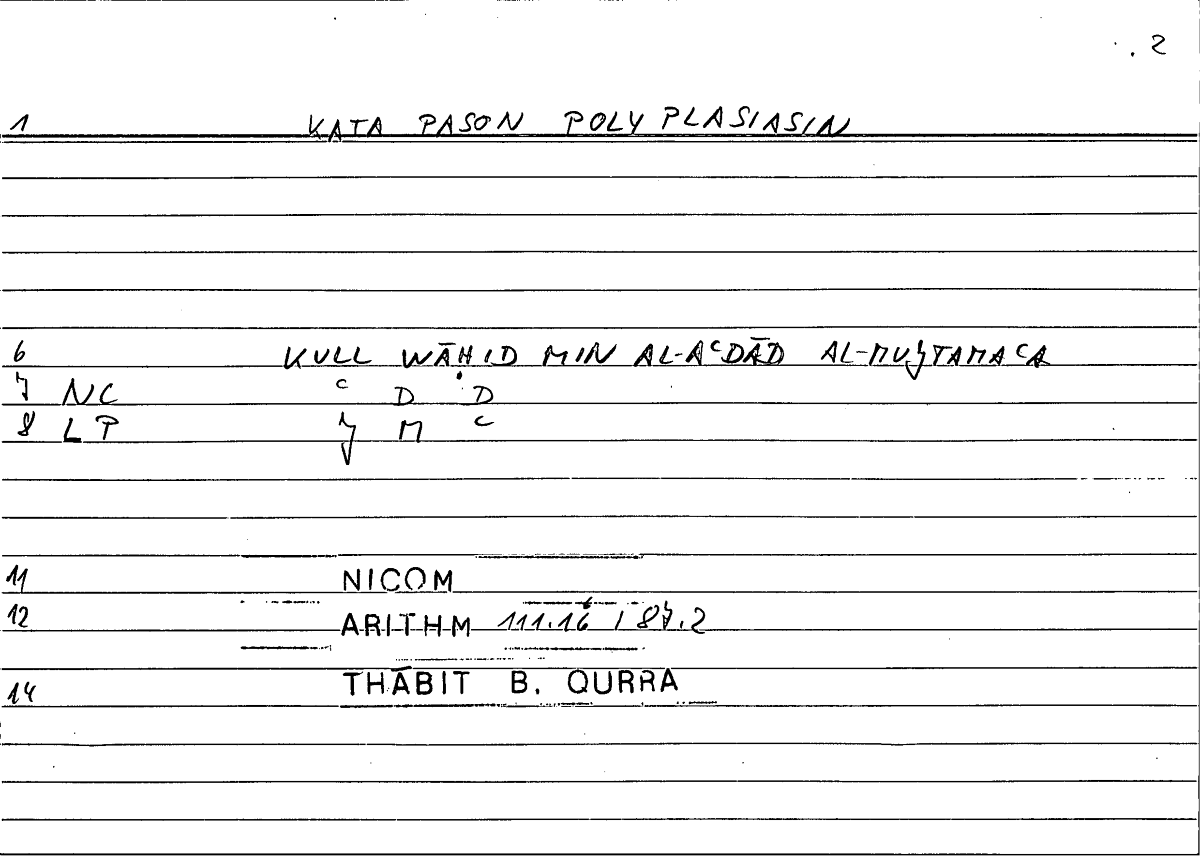 . 2
1 KATA PASON POLYPLASIASIN
6 KULL WĀḤID MIN AL-AᶜDĀD AL-MUJTAMAᶜA
7 NC ᶜ D D
8 LP J M ᶜ
11 NICOM
12 ARITHM 111.16 / 87.2
14 THĀBIT B. QURRA